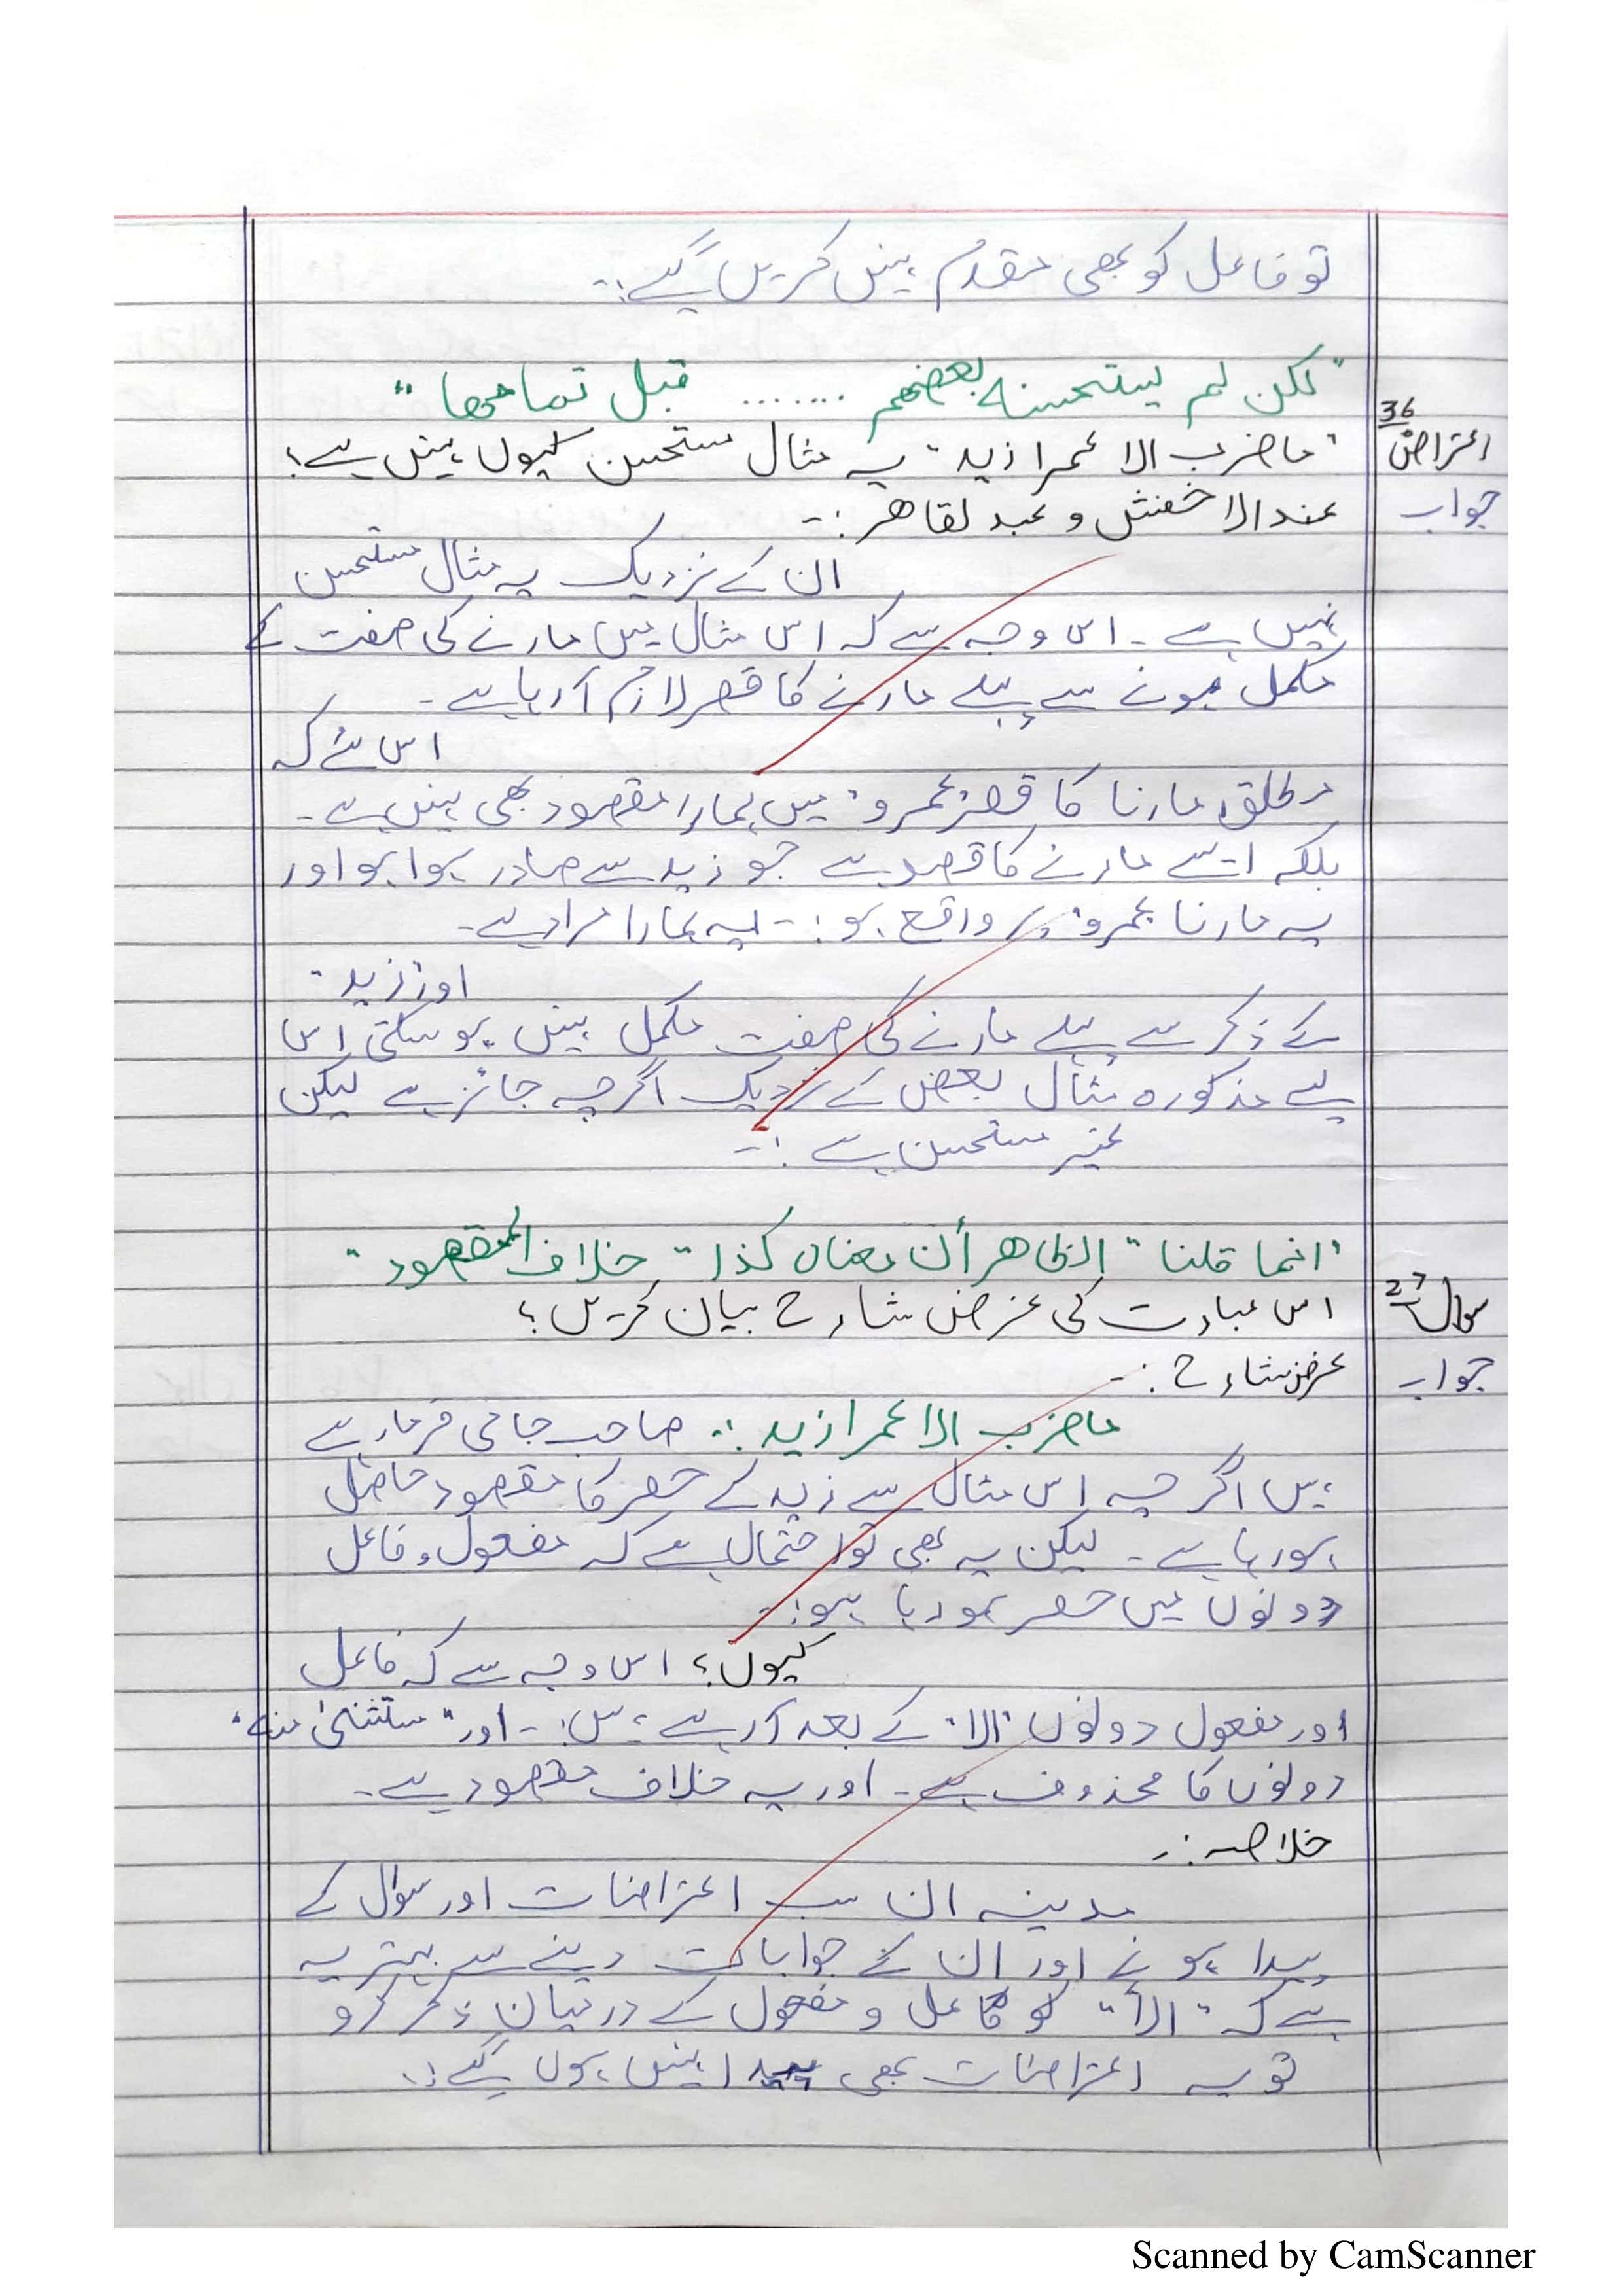 تو فاعل کو بھی مقدم نہیں کریں گے :-
"لکن لم یستحسنہ بعضھم ....... قبل تمامھا"
36
اعتراض "ماضرب الا عمرا زید" یہ مثال مستحسن کیوں نہیں ہے؟
جواب عند الاخفش و عبد لقاھر :-
ان کے نزدیک یہ مثال مستحسن
نہیں ہے ۔ اس وجہ سے کہ اس مثال میں مارنے کی صفت کے
مکمل ہونے سے پہلے مارنے کا قصر لازم آ رہا ہے ۔
اس لئے کہ
مطلق مارنا کا قصر "عمرو" میں ہمارا مقصود بھی نہیں ہے ۔
بلکہ ایسے مارنے کا قصر ہے جو زید سے صادر ہوا ہو اور
یہ مارنا "عمرو" پر واقع ہو :- یہ ہمارا مراد ہے ۔
اور "زید"
کے ذکر سے پہلے مارنے کی صفت مکمل نہیں ہو سکتی اس
لیے مذکورہ مثال بعض کے نزدیک اگرچہ جائز ہے لیکن
غیر مستحسن ہے :-
"انما قلنا" الظاھر أن معناہ کذا" خلاف المقصود"
سوال 27 اس عبارت کی غرض شارح بیان کریں؟
جواب غرض شارح :-
ماضرب الا عمرا زید :. صاحب جامی فرما رہے
ہیں اگرچہ اس مثال سے زید کے حصر کا مقصود حاصل
ہو رہا ہے ۔ لیکن یہ بھی تو احتمال ہے کہ مفعول و فاعل
دونوں میں حصر ہو رہا ہو :-
کیوں؟ اس وجہ سے کہ فاعل
اور مفعول دونوں "الا" کے بعد آ رہے ہیں :- اور "مستثنیٰ منہ"
دونوں کا محذوف ہے ۔ اور یہ خلاف مقصود ہے ۔
خلاصہ :-
مدینہ ان سب اعتراضات اور سوال کے
پیدا ہونے اور ان کے جوابات دینے سے بہتر یہ
ہے کہ "الا" کو فاعل و مفعول کے درمیان ذکر کرو
تو یہ اعتراضات بھی پیدا نہیں ہوں گے :.
Scanned by CamScanner